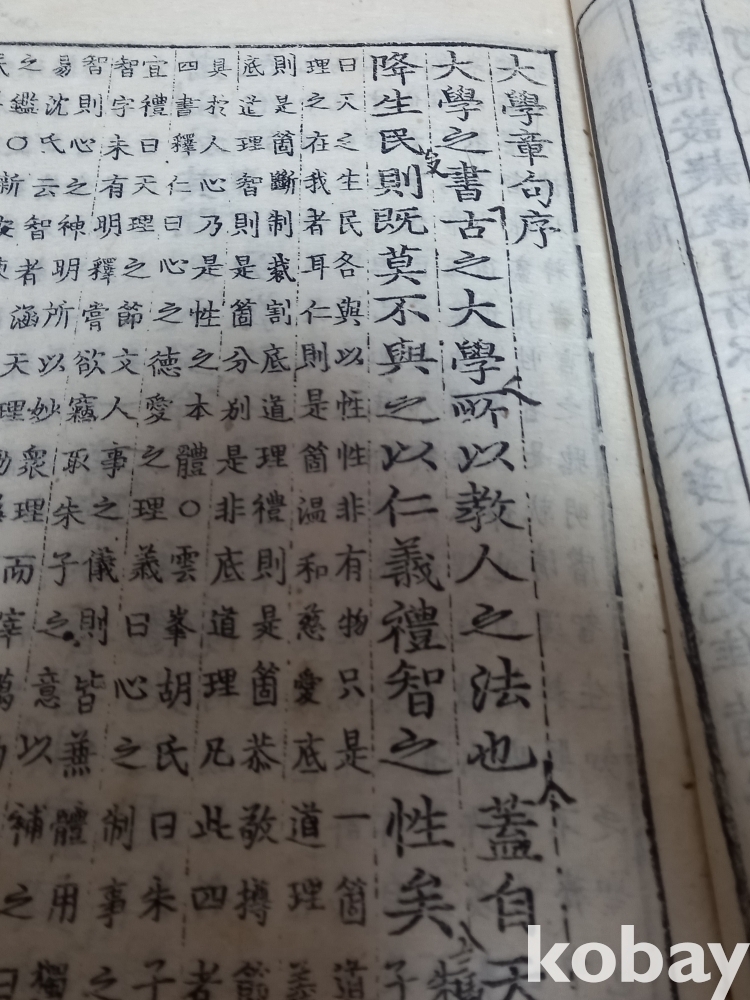 大學章句序
大學之書古之大學所以教人之法也蓋自天
降生民則既莫不與之以仁義禮智之性矣
曰天之生民各與以性性非有物只是一箇道
理之在我者耳仁則是箇溫和慈愛底道理義
則是箇斷制裁割底道理禮則是箇恭敬撙節
底道理智則是箇分别是非底道理凡此四者
具於人心乃是性之本體○雲峯胡氏曰朱子
四書釋仁曰心之德愛之理義曰心之制事之
宜禮曰天理之節文人事之儀則皆兼體用獨
智字未有明釋嘗欲竊取朱子之意以補之曰
智則心之神明所以妙衆理而宰萬
易沈氏云智者涵天理
之鑑○新安
kobay